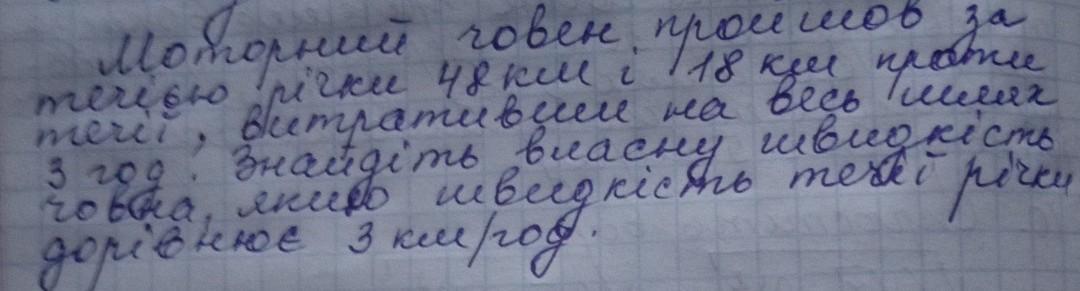 Моторний човен пройшов за
течією річки 48 км і 18 км проти
течії, витративши на весь шлях
3 год. Знайдіть власну швидкість
човна, якщо швидкість течії річки
дорівнює 3 км/год.